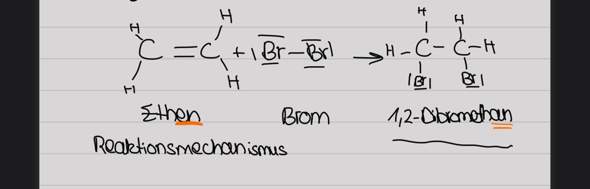 H H H H
C = C + |Br – Br| → H – C – C – H
H H |Br| Br|
Ethen Brom 1,2-Dibromethan
Reaktionsmechanismus